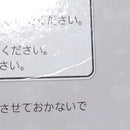 ください。
ください。
さい。
させておかないで